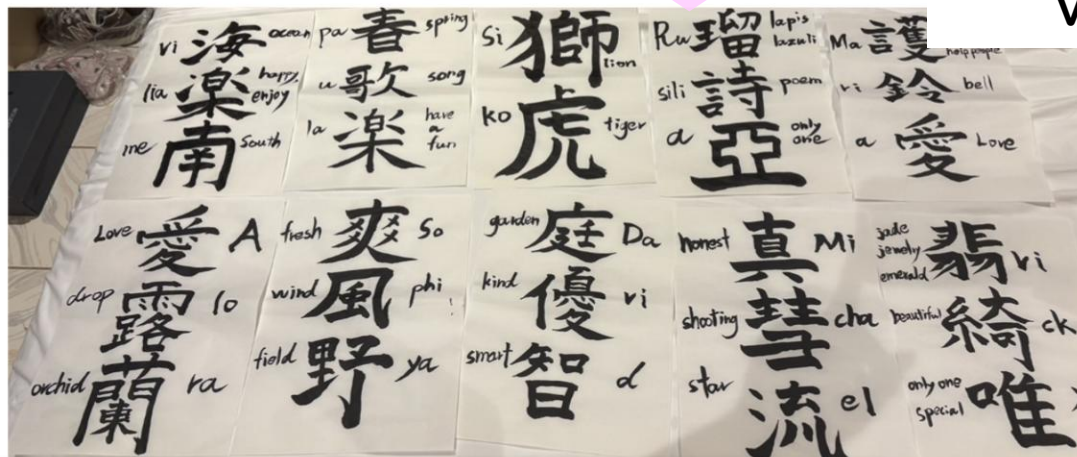 vi 海 ocean
lia 楽 happy enjoy
me 南 South
pa 春 spring
u 歌 song
la 楽 have a fun
Si 獅 lion
ko 虎 tiger
Ru 瑠 lapis lazuli
sili 詩 poem
a 亞 only one
Ma 護 help people
ri 鈴 bell
a 愛 Love
Love 愛 A
drop 露 lo
orchid 蘭 ra
fresh 爽 So
wind 風 phi
field 野 ya
garden 庭 Da
kind 優 vi
smart 智 d
honest 真 Mi
shooting 彗 cha
star 流 el
jade jewelry emerald 翡 vi
beautiful 綺 ck
only one special 唯